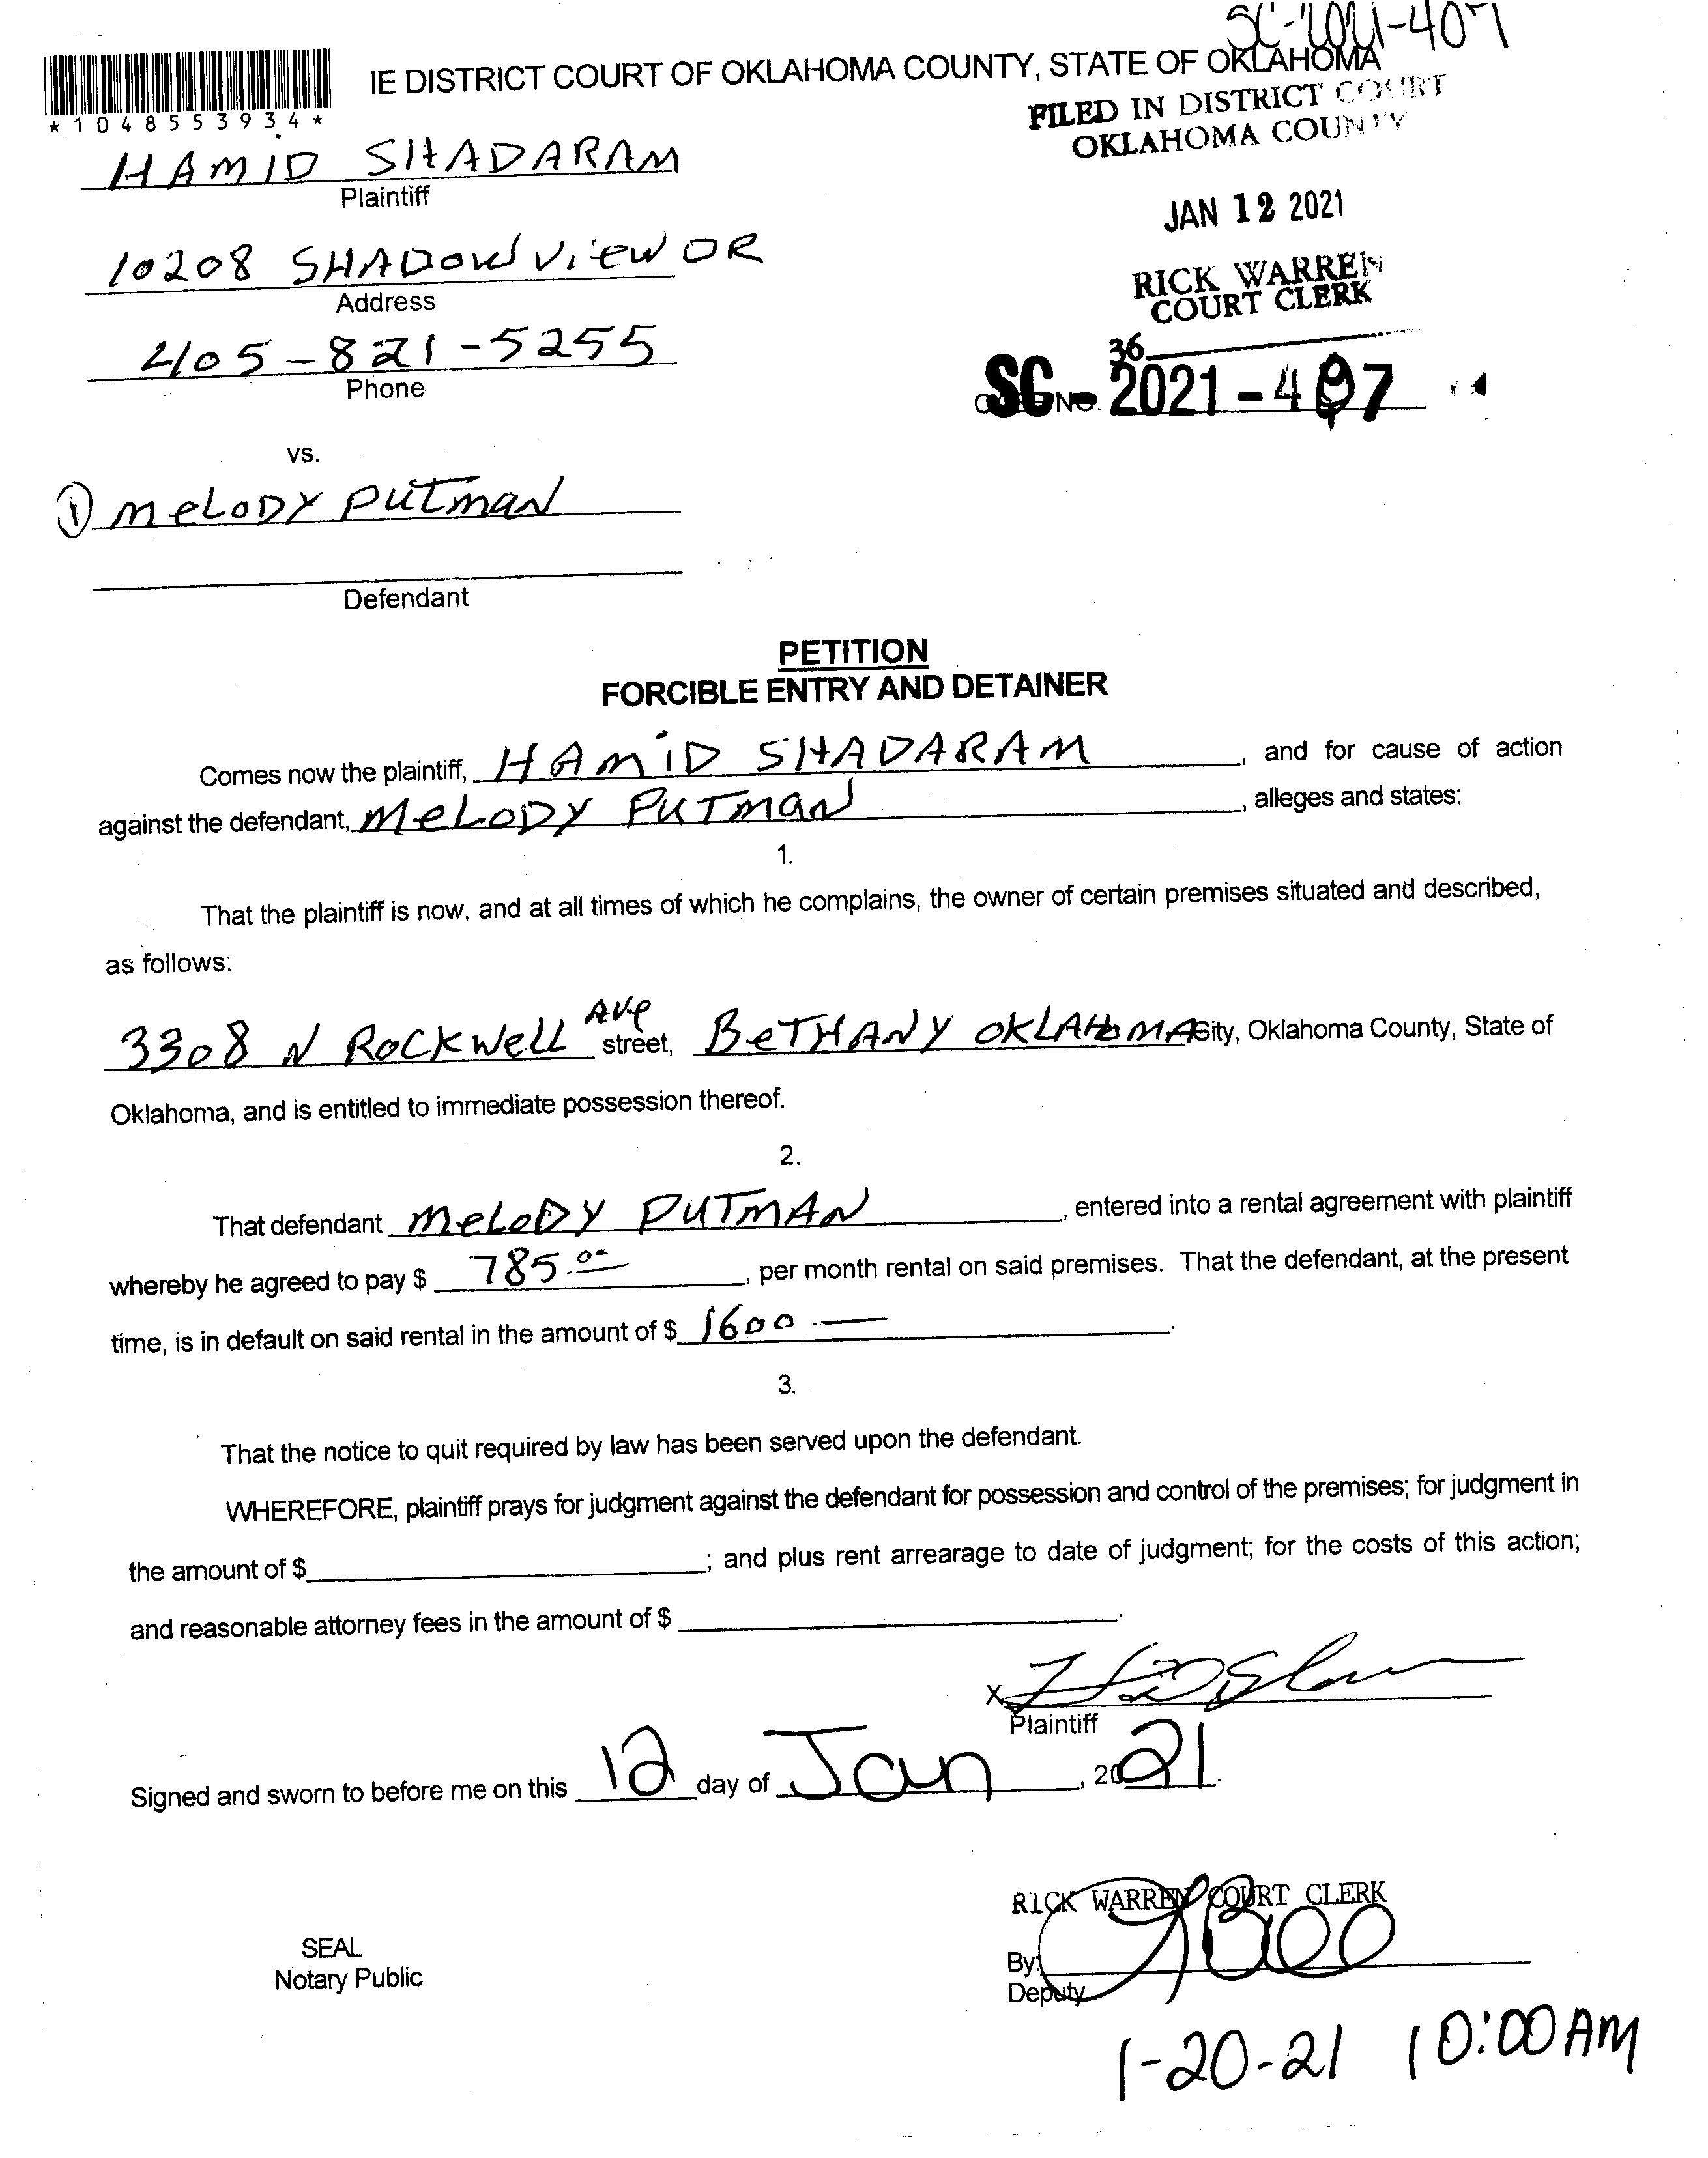 SC-2021-407
IE DISTRICT COURT OF OKLAHOMA COUNTY, STATE OF OKLAHOMA
*1048553934*
FILED IN DISTRICT COURT
OKLAHOMA COUNTY
HAMID SHADARAM
Plaintiff
JAN 12 2021
10208 SHADOW VIEW DR
Address
RICK WARREN
COURT CLERK
405-821-5255
Phone
36
SC-2021-407
NO.
vs.
① MELODY PUTMAN
Defendant
PETITION
FORCIBLE ENTRY AND DETAINER
Comes now the plaintiff, HAMID SHADARAM, and for cause of action
against the defendant, MELODY PUTMAN, alleges and states:
1.
That the plaintiff is now, and at all times of which he complains, the owner of certain premises situated and described,
as follows:
3308 N ROCKWELL Ave street, BETHANY OKLAHOMA City, Oklahoma County, State of
Oklahoma, and is entitled to immediate possession thereof.
2.
That defendant MELODY PUTMAN, entered into a rental agreement with plaintiff
whereby he agreed to pay $ 785.00, per month rental on said premises. That the defendant, at the present
time, is in default on said rental in the amount of $ 1600.—.
3.
That the notice to quit required by law has been served upon the defendant.
WHEREFORE, plaintiff prays for judgment against the defendant for possession and control of the premises; for judgment in
the amount of $ ; and plus rent arrearage to date of judgment; for the costs of this action;
and reasonable attorney fees in the amount of $ .
X
Plaintiff
Signed and sworn to before me on this 12 day of Jan, 2021.
RICK WARREN COURT CLERK
SEAL
Notary Public
By:
Deputy
1-20-21 10:00AM